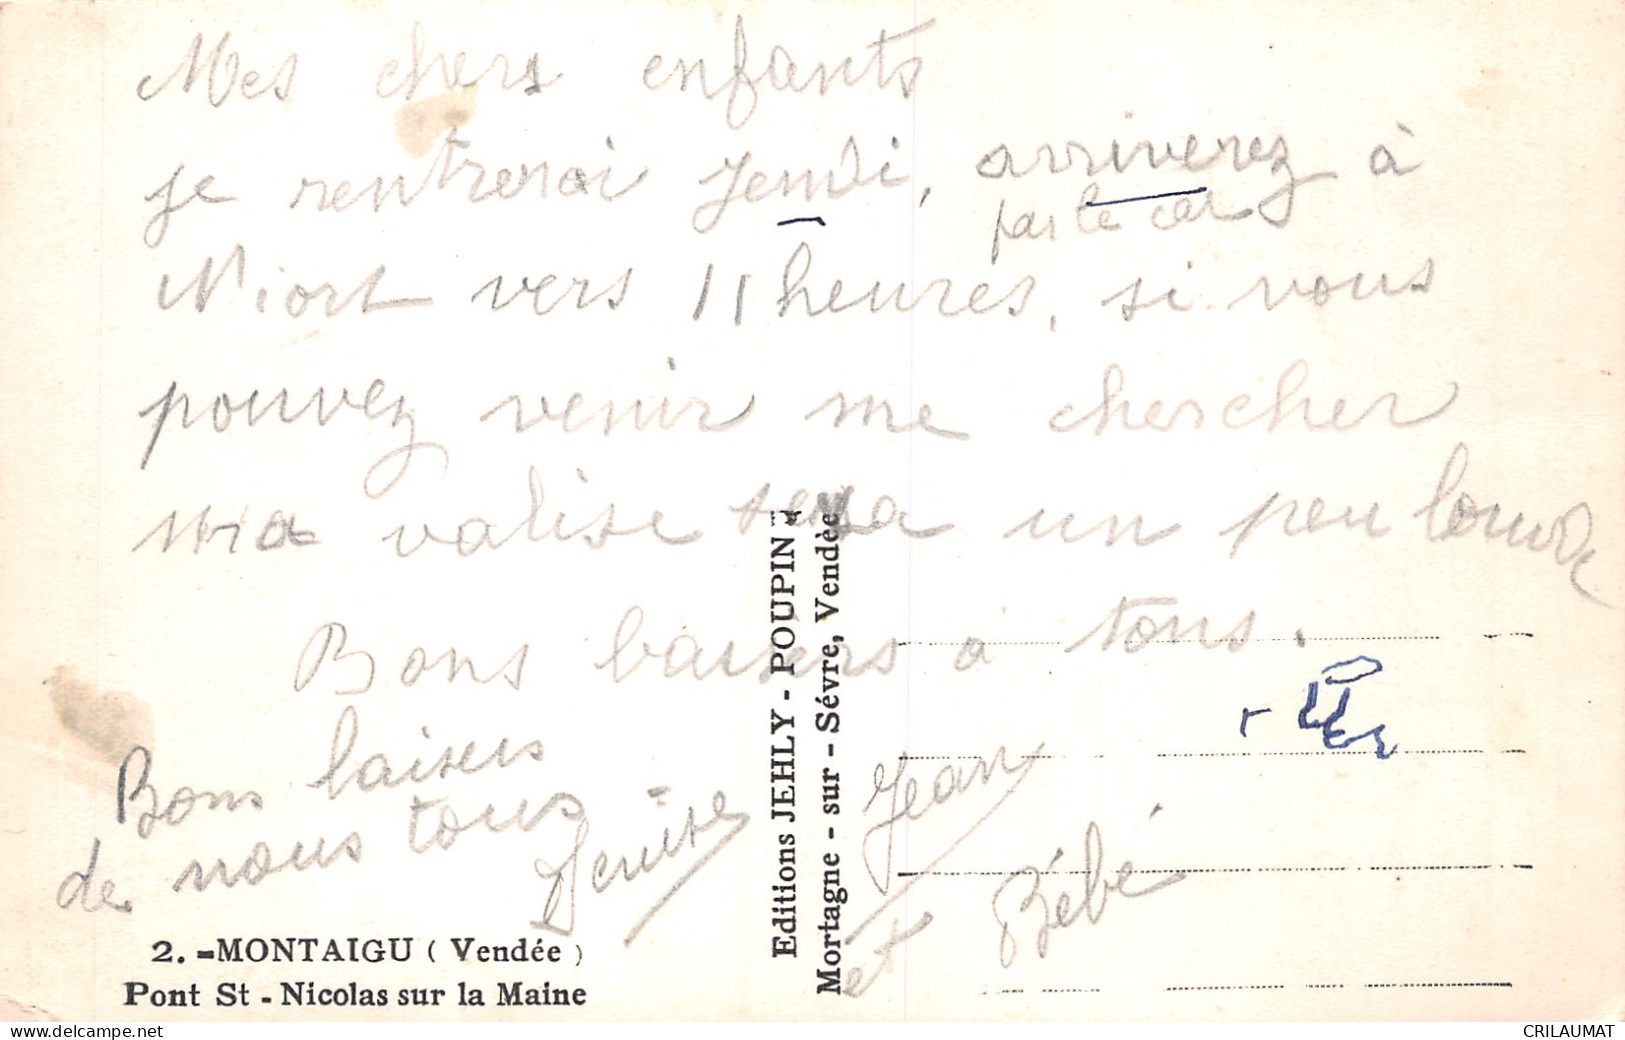 Mes chers enfants
je rentrerai Jeudi, arriverez à
par le car
Niort vers 11 heures, si vous
pouvez venir me chercher
ma valise sera un peu lourde
Bons baisers à tous.
Bons baisers
de nous tous
Denise
Jean
et Bébé
Editions JEHLY - POUPIN à
Mortagne - sur - Sévre, Vendèe
2. - MONTAIGU ( Vendée )
Pont St - Nicolas sur la Maine
www.delcampe.net
CRILAUMAT